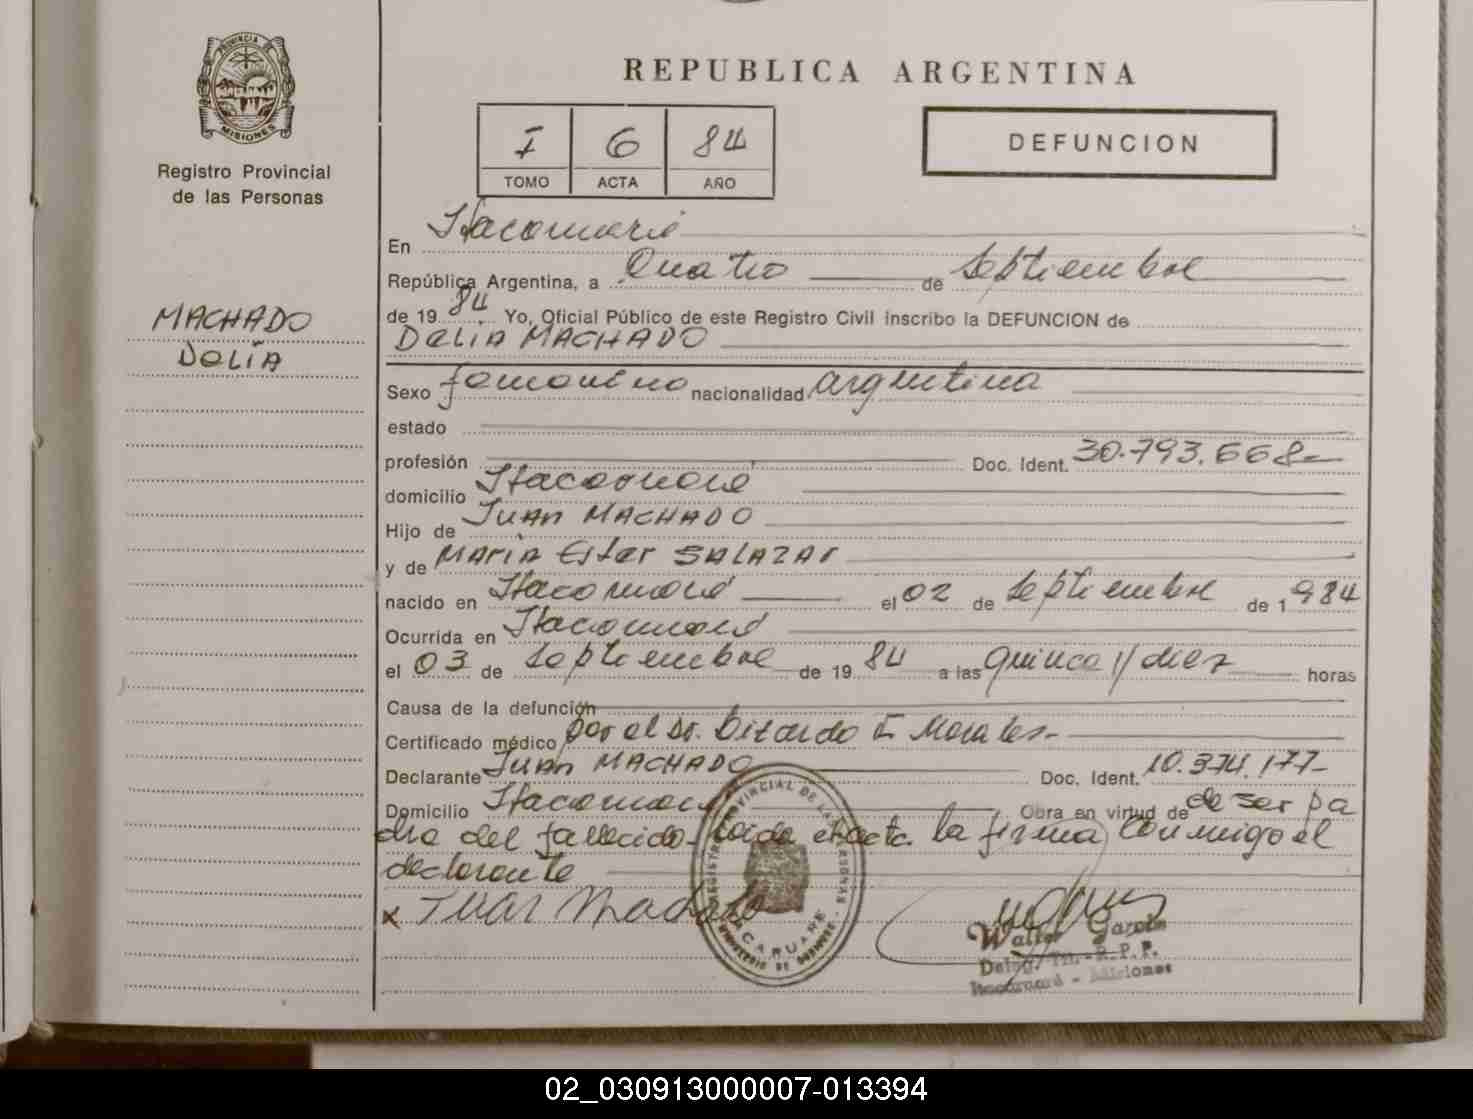 PROVINCIA DE
MISIONES
Registro Provincial
de las Personas
MACHADO
DELÍA
REPUBLICA ARGENTINA
I 6 84
TOMO ACTA AÑO
DEFUNCION
En Itacaruaré
República Argentina, a Cuatro de Septiembre
de 19 84 Yo, Oficial Público de este Registro Civil inscribo la DEFUNCION de
DELIA MACHADO
Sexo femenino nacionalidad argentina
estado
profesión Doc. Ident. 30.793.668-
domicilio Itacaruaré
Hijo de Juan MACHADO
y de María Ester SALAZAR
nacido en Itacaruaré el 02 de Septiembre de 1984
Ocurrida en Itacaruaré
el 03 de Septiembre de 19 84 a las quince y diez horas
Causa de la defunción
Certificado médico por el Dr. E Morales-
Declarante Juan MACHADO Doc. Ident. 10.374.177-
Domicilio Itacaruaré Obra en virtud de de ser pa
dre del fallecido- Leída el acta la firma conmigo el
declarante
x Juan Machado
REGISTRO PROVINCIAL DE LAS PERSONAS
ITACARUARE
MINISTERIO DE GOBIERNO
Walter García
Deleg. Tit. - R. P. P.
Itacaruaré - Misiones
02_030913000007-013394